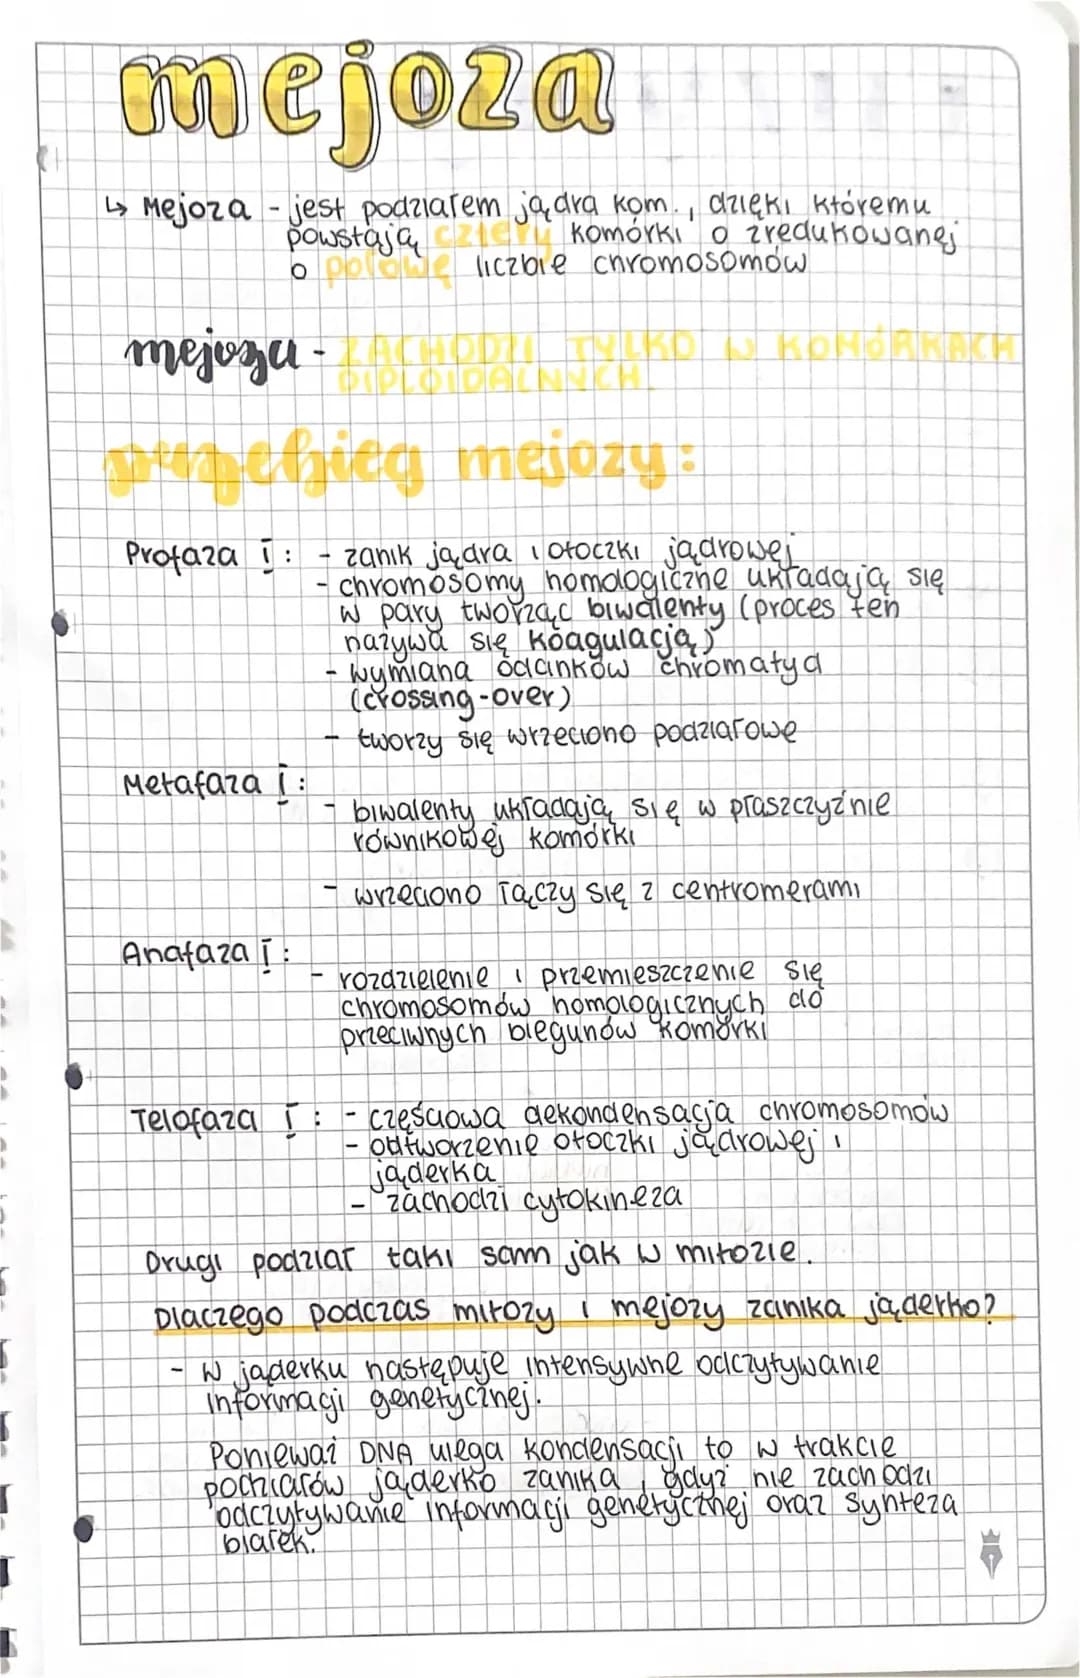 mejoza
↳ Mejoza - jest podziałem jądra kom., dzięki któremu
powstają cztery komórki o zredukowanej
o połowę liczbie chromosomów
mejoza - ZACHODZI TYLKO W KOMÓRKACH
DIPLOIDALNYCH.
przebieg mejozy:
Profaza I: - zanik jądra i otoczki jądrowej
- chromosomy homologiczne układają się
w pary tworząc biwalenty (proces ten
nazywa się koagulacją)
- wymiana odcinków chromatyd
(crossing-over)
- tworzy się wrzeciono podziałowe
Metafaza I:
- biwalenty układają się w płaszczyźnie
równikowej komórki
- wrzeciono łączy się z centromerami
Anafaza I:
- rozdzielenie i przemieszczenie się
chromosomów homologicznych do
przeciwnych biegunów komórki
Telofaza I: - częściowa dekondensacja chromosomów
- odtworzenie otoczki jądrowej i
jąderka
- zachodzi cytokineza
Drugi podział taki sam jak w mitozie.
Dlaczego podczas mitozy i mejozy zanika jąderko?
- W jąderku następuje intensywne odczytywanie
informacji genetycznej.
Ponieważ DNA ulega kondensacji to w trakcie
podziałów jąderko zanika, gdyż nie zachodzi
odczytywanie informacji genetycznej oraz synteza
białek.